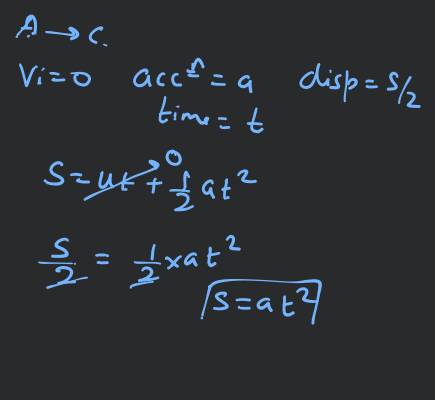 A → C.
Vi = 0 accⁿ = a disp = S/2
time = t
S = ut + 1/2 at² 0
S/2 = 1/2 × at²
S = at²